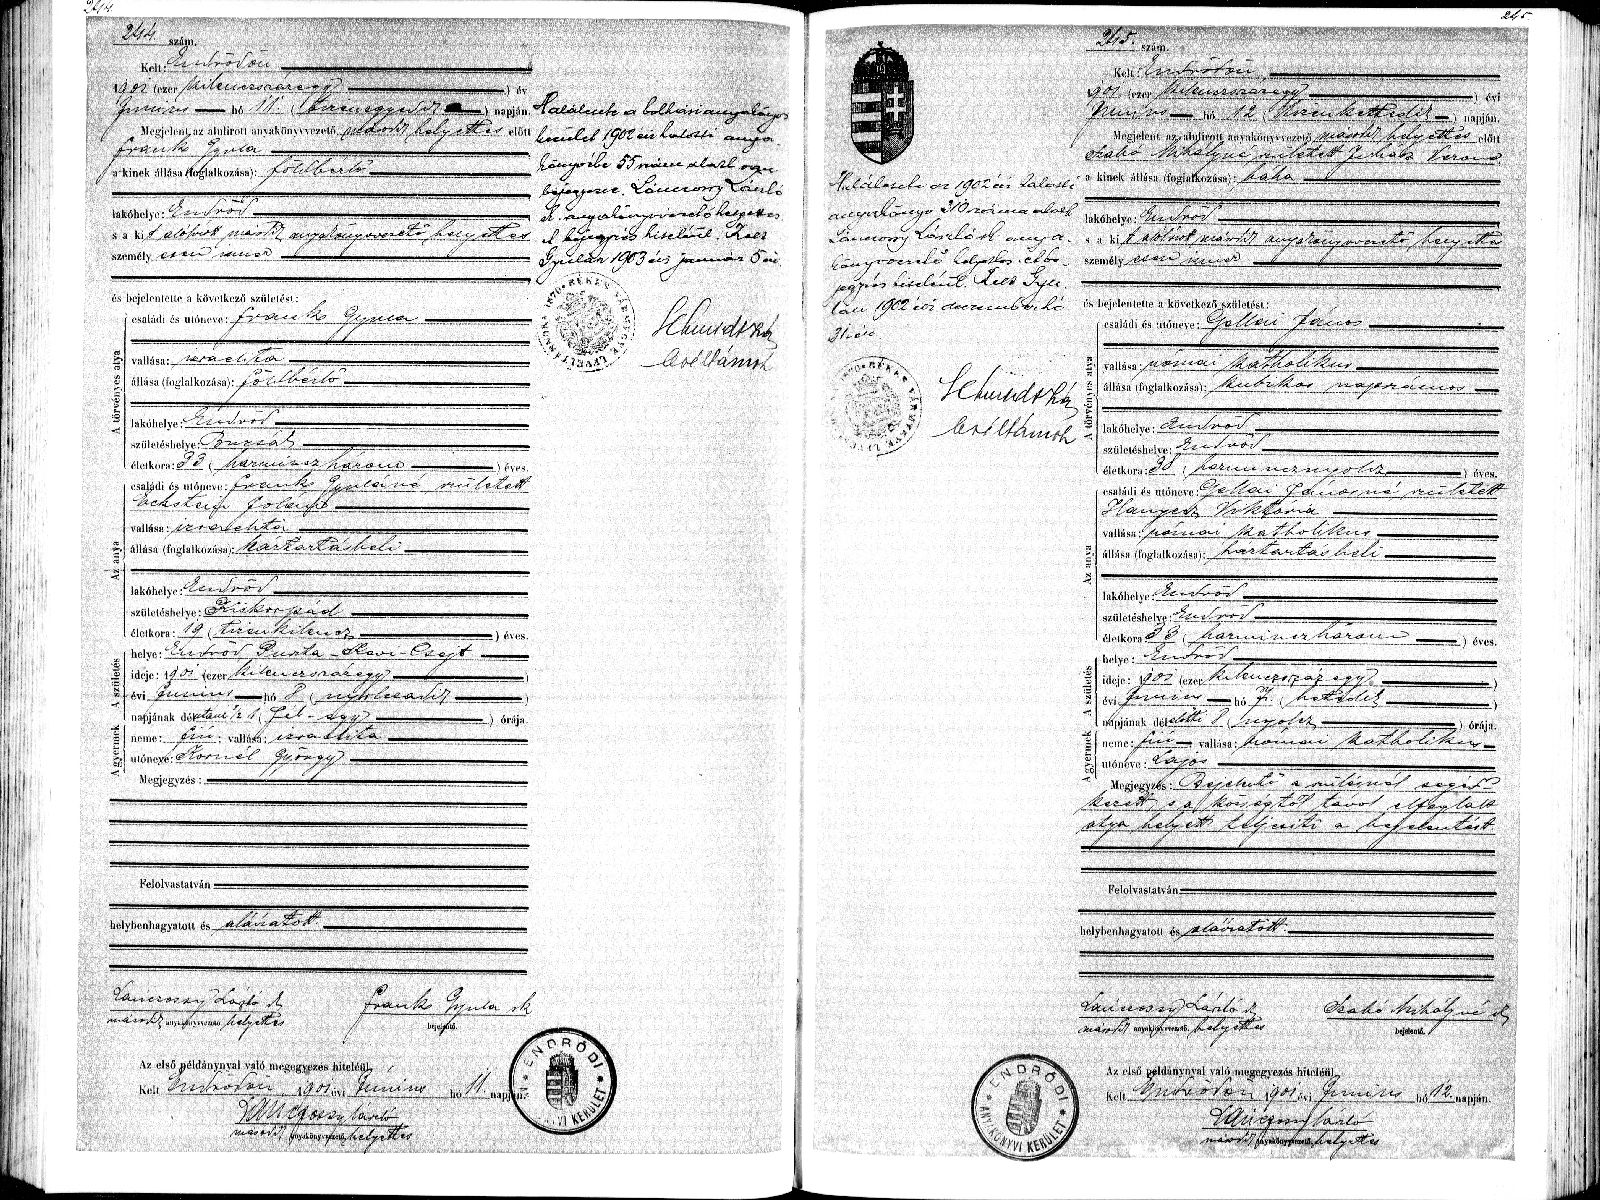 244
244 szám.
Kelt: Endrődön
1901 (ezer kilenczszázegy) évi
Június hó 11. (tizenegyedik) napján.
Megjelent az alulirott anyakönyvvezető, másodk helyettes előtt
Frank Gyula
a kinek állása (foglalkozása): földbérlő
lakóhelye: Endrőd
s a kit alulirott másodk anyakönyvvezető helyettes
személyesen ismer
és bejelentette a következő születést:
A törvényes atya
családi és utóneve: Frank Gyula
vallása: izraelita
állása (foglalkozása): földbérlő
lakóhelye: Endrőd
születéshelye:
életkora: 33 (harminczhárom) éves.
Az anya
családi és utóneve: Frank Gyuláné született
Eckstein Jolán
vallása: izraelita
állása (foglalkozása): háztartásbeli
lakóhelye: Endrőd
születéshelye: Kiskorpád
életkora: 19 (tizenkilencz) éves.
A születés
helye: Endrőd Puszta-Kové-Csejt
ideje: 1901 (ezer kilenczszázegy)
évi Június hó 8 (nyolczadik)
napjának délutáni ½ 1 (fél-egy) órája.
A gyermek
neme: fiú; vallása: izraelita
utóneve: Kornél György
Megjegyzés:
Felolvastatván
helybenhagyatott és aláiratott.
Lánczossy László sk
másodk anyakönyvvezető, helyettes
Frank Gyula sk
bejelentő.
Az első példánynyal való megegyezés hiteléül,
Kelt Endrődön 1901 évi Június hó 11. napján.
Lánczossy László
másodk anyakönyvvezető, helyettes
ENDRŐDI
ANYAKÖNYVI KERÜLET
kerület 1902 évi halotti anya-
könyvébe 55 szám alatt van
bejegyezve. Lánczossy László
sk. anyakönyvvezető helyettes
Gyulán 1903 évi január 5 én.
1870 BÉKÉS VÁRMEGYE LEVÉLTÁRNOK
Schmidt Iván
levéltárnok
245.
245. szám.
Kelt: Endrődön,
1901 (ezer kilenczszázegy) évi
Június hó 12 (tizenkettedik) napján.
Megjelent az alulirott anyakönyvvezető másodk helyettes előtt
Szabó Mihályné született Juhász Verona
a kinek állása (foglalkozása): bába
lakóhelye: Endrőd
s a kit alulirott másodk anyakönyvvezető helyettes
személyesen ismer
és bejelentette a következő születést:
A törvényes atya
családi és utóneve: Gellai János
vallása: római katholikus
állása (foglalkozása): kubikos napszámos
lakóhelye: Endrőd
születéshelye: Endrőd
életkora: 38 (harmincznyolcz) éves.
Az anya
családi és utóneve: Gellai Jánosné született
Hanyecz Viktória
vallása: római katholikus
állása (foglalkozása): háztartásbeli
lakóhelye: Endrőd
születéshelye: Endrőd
életkora: 33 (harminczhárom) éves.
A születés
helye: Endrőd
ideje: 1901 (ezer kilenczszázegy)
évi Június hó 7. (hetedik)
napjának délelőtti 8 (nyolcz) órája.
A gyermek
neme: fiú vallása: római katholikus
utóneve: Lajos
Megjegyzés: Bejelentő a szülésnél segéd-
kezett, s a községtől távol elfoglalt
atya helyett teljesíti a bejelentést
Felolvastatván
helybenhagyatott és aláiratott.
Lánczossy László sk
másodk anyakönyvvezető, helyettes
Szabó Mihályné sk
bejelentő.
Az első példánynyal való megegyezés hiteléül,
Kelt Endrődön 1901 évi Június hó 12. napján.
Lánczossy László
másodk anyakönyvvezető, helyettes
ENDRŐDI
ANYAKÖNYVI KERÜLET
Halálesete az 1902 évi halotti
anyakönyv 310 száma alatt
Lánczossy László sk anya-
könyvvezető helyettes. E be-
jegyzés hiteléül. Kelt Gyu-
lán 1902 évi december hó
31-én
1870 BÉKÉS VÁRMEGYE LEVÉLTÁRNOK
Schmidt Iván
levéltárnok